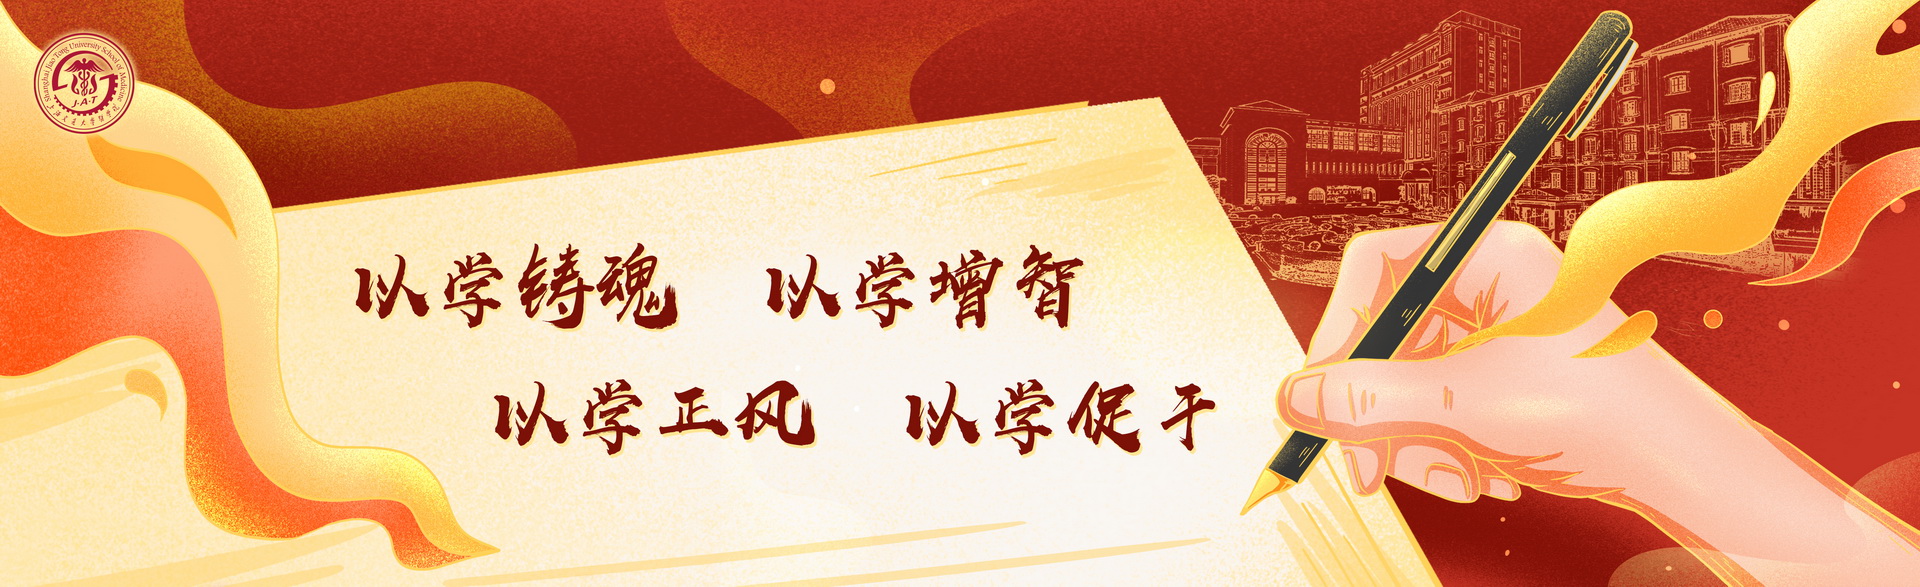 Shanghai Jiao Tong University School of Medicine
J·A·T
上海交通大学医学院
以学铸魂 以学增智
以学正风 以学促干